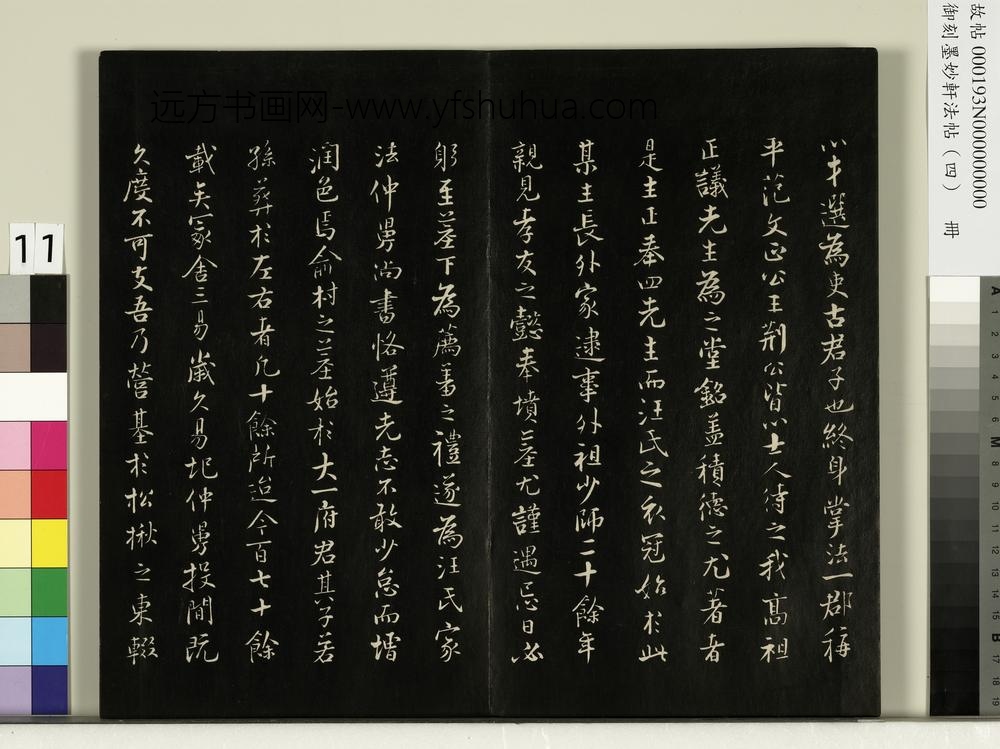 故帖 000193N000000000
御刻墨妙軒法帖（四） 冊
远方书画网-www.yfshuhua.com
以才選為吏古君子也終身掌法一郡稱
平范文正公王荆公皆以士人待之我高祖
正議先生為之堂銘盖積德之尤著者
是生正奉四先生而汪氏之衣冠始於此
某生長外家逮事外祖少師二十餘年
親見孝友之懿奉墳墓尤謹遇忌日必
躬至墓下為薦羞之禮遂為汪氏家
法仲舅尚書恪遵先志不敢少怠而增
潤色焉俞村之墓始於大一府君其子若
孫葬於左右者凡十餘所迨今百七十餘
載矣冢舍三易歲久易圮仲舅投閒既
久度不可支吾乃營基於松楸之東輟
11
A 1 2 3 4 5 6 M 8 9 10 11 12 13 14 15 B 17 18 19